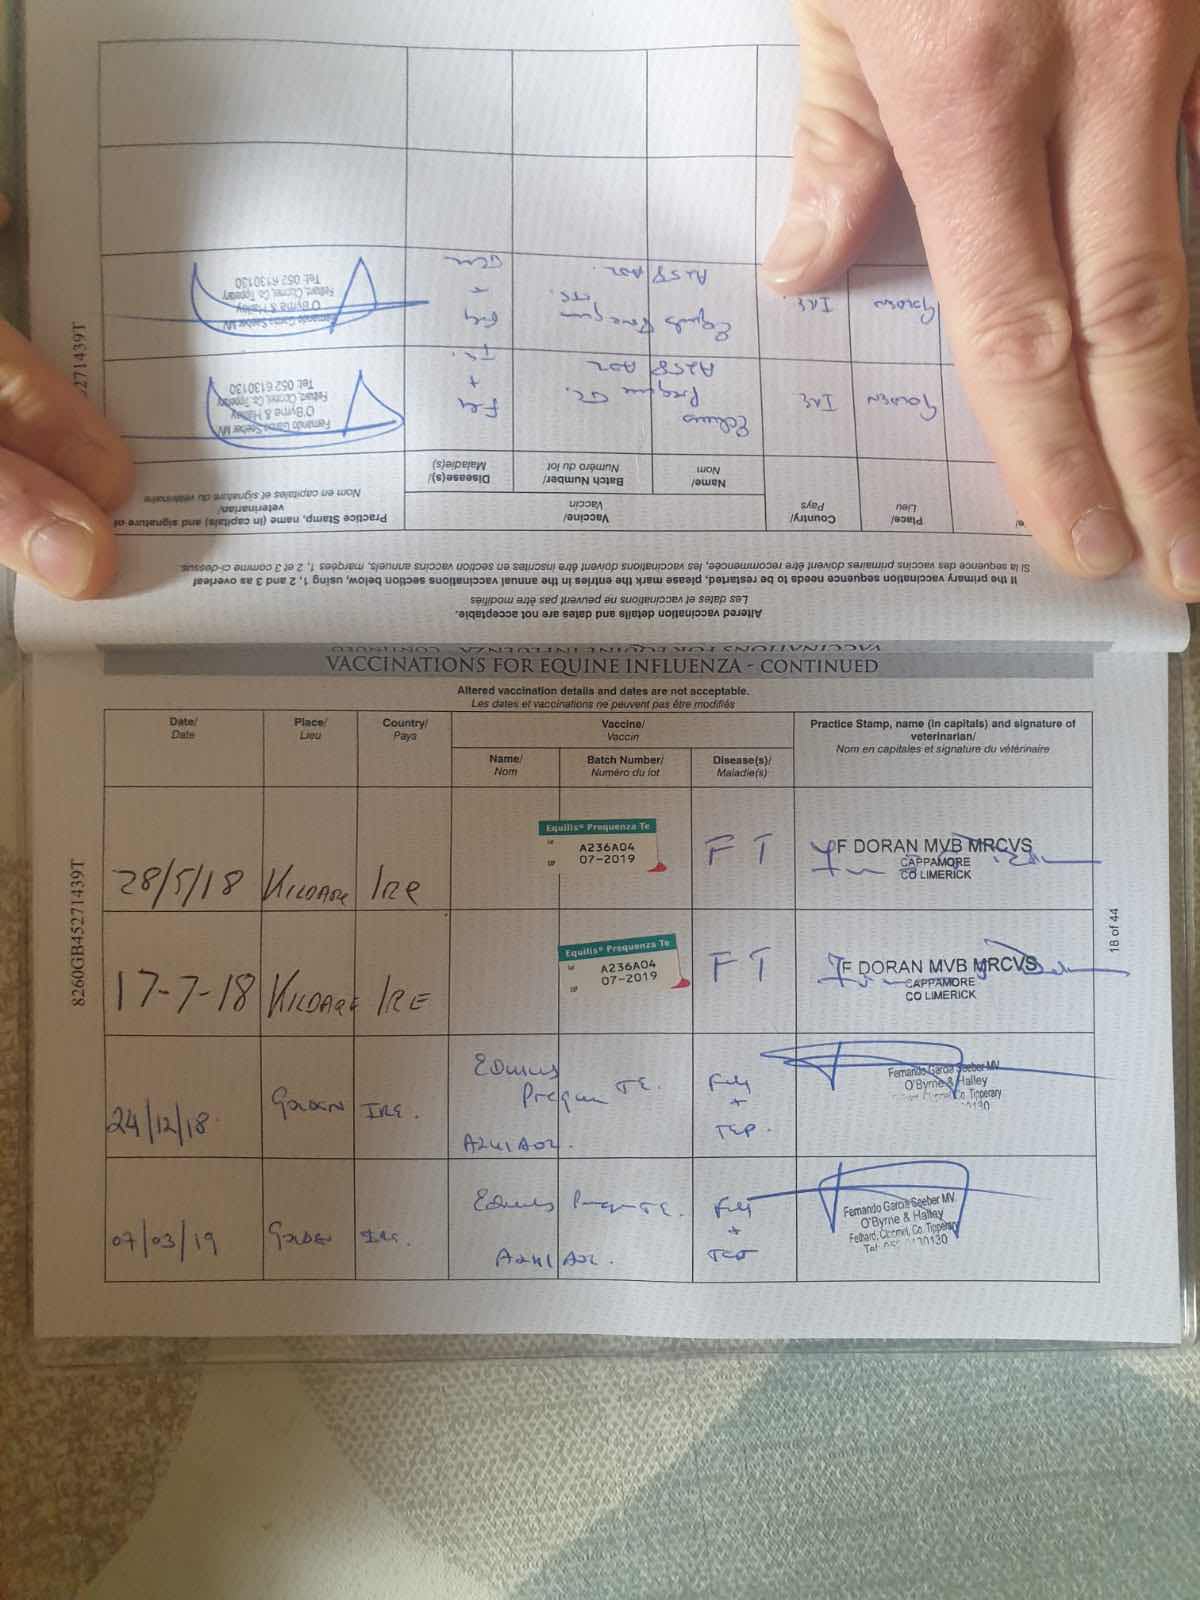 8260GB45271439T
5271439T
Altered vaccination details and dates are not acceptable.
Les dates et vaccinations ne peuvent pas être modifiés
If the primary vaccination sequence needs to be restarted, please mark the entries in the annual vaccinations section below, using 1, 2 and 3 as overleaf
Si la sequence des vaccins primaires doivent être recommencées, les vaccinations doivent être inscrites en section vaccins annuels, marqées 1, 2 et 3 comme ci-dessus.
Place/
Lieu
Country/
Pays
Vaccine/
Vaccin
Name/
Nom
Batch Number/
Numéro du lot
Disease(s)/
Maladie(s)
Practice Stamp, name (in capitals) and signature of
veterinarian/
Nom en capitales et signature du vétérinaire
GOLDEN IRE
A258 A02
Flu
+
Fernando Garcia Seeber MV
O'Byrne & Halley
Fethard, Clonmel, Co. Tipperary
Tel: 052 6130130
GOLDEN IRE.
A258 A02
Flu
+
Fernando Garcia Seeber MV
O'Byrne & Halley
Fethard, Clonmel, Co. Tipperary
Tel: 052 6130130
VACCINATIONS FOR EQUINE INFLUENZA - CONTINUED
VACCINATIONS FOR EQUINE INFLUENZA - CONTINUED
Altered vaccination details and dates are not acceptable.
Les dates et vaccinations ne peuvent pas être modifiés
Date/
Date
Place/
Lieu
Country/
Pays
Vaccine/
Vaccin
Name/
Nom
Batch Number/
Numéro du lot
Disease(s)/
Maladie(s)
Practice Stamp, name (in capitals) and signature of
veterinarian/
Nom en capitales et signature du vétérinaire
28/5/18 KILDARE IRE
Equilis® Prequenza Te
A236A04
07-2019
F T
F DORAN MVB MRCVS
CAPPAMORE
CO LIMERICK
17-7-18 KILDARE IRE
Equilis® Prequenza Te
A236A04
07-2019
F T
F DORAN MVB MRCVS
CAPPAMORE
CO LIMERICK
24/12/18 GOLDEN IRE.
TE.
A241A02.
Flu
+
Fernando Garcia Seeber MV
O'Byrne & Halley
Fethard, Clonmel, Co. Tipperary
07/03/19 GOLDEN IRE.
TE.
A241 A02.
Flu
+
Fernando Garcia Seeber MV.
O'Byrne & Halley
Fethard, Clonmel, Co. Tipperary
18 of 44